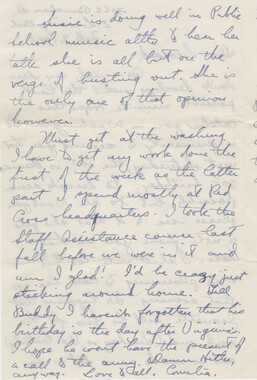 is doing well in Public
school music altho to hear her
talk she is all but on the
verge of busting out. She is
the only one of that opinion
however.
Must get at the washing
I have to get my work done the
first of the week as the latter
part I spend mostly at Red
Cross headquarters. I took the
Staff Assistance course last
fall before we were in it and
am I glad! I'd be crazy just
sticking around home. Tell
Buddy I haven't forgotten that his
birthday is the day after Virginia's.
I hope he won't have the present of
a call to the army. Hitler,
anyway. Love to all,